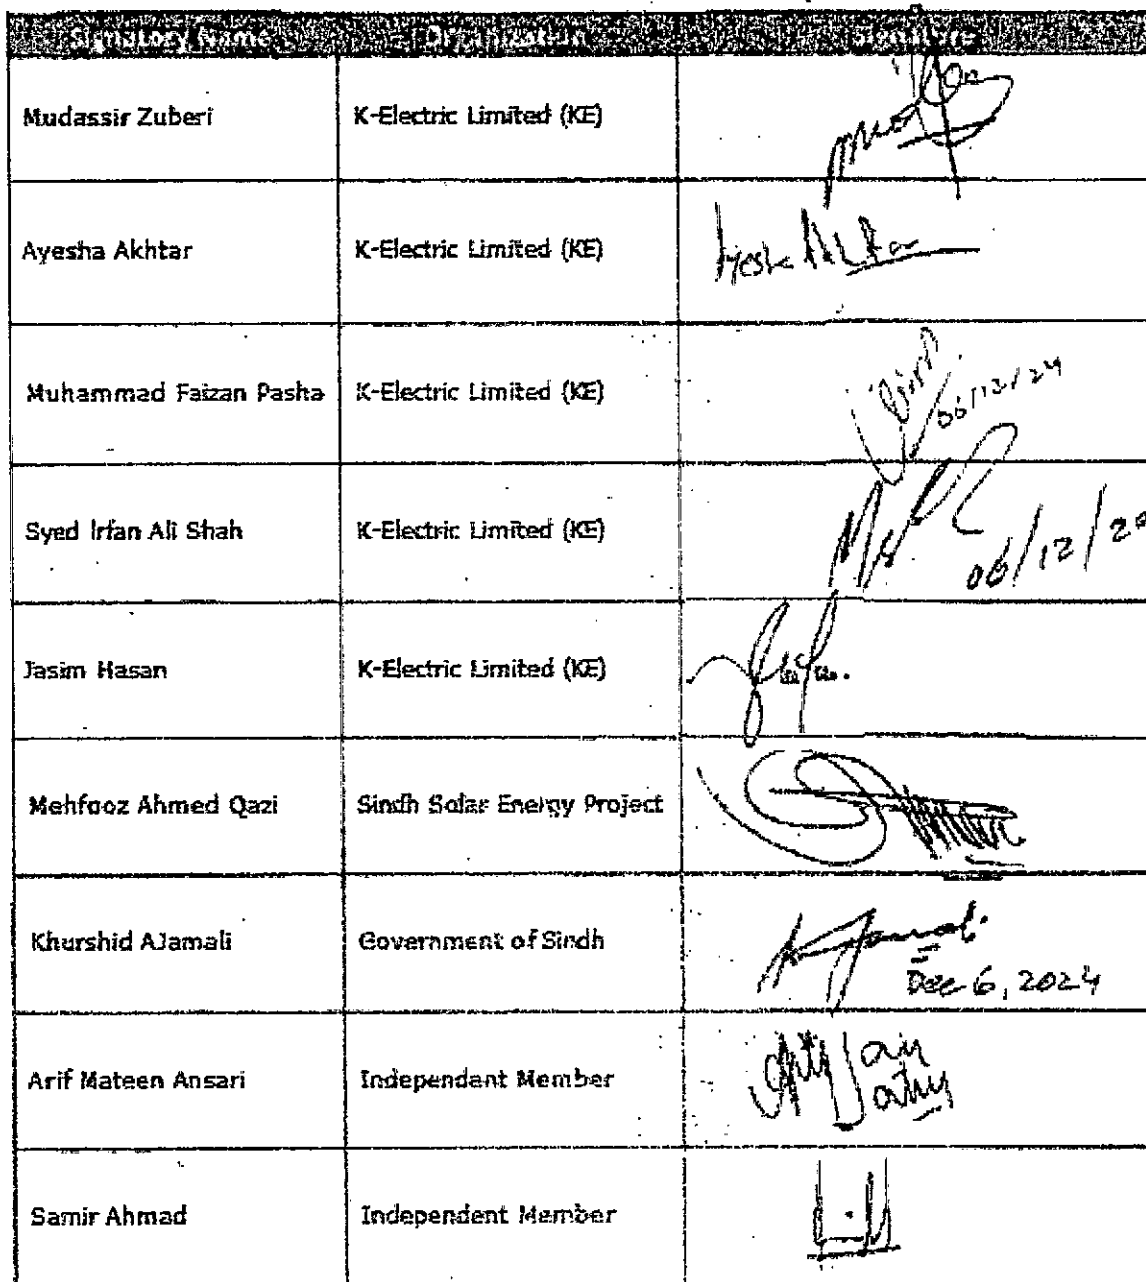 Signatory Name Organization Signature
Mudassir Zuberi K-Electric Limited (KE)
Ayesha Akhtar K-Electric Limited (KE) Ayesha Akhtar
Muhammad Faizan Pasha K-Electric Limited (KE)
06/12/24
Syed Irfan Ali Shah K-Electric Limited (KE)
06/12/20
Jasim Hasan K-Electric Limited (KE)
Mehfooz Ahmed Qazi Sindh Solar Energy Project
Khurshid AJamali Government of Sindh
Dec 6, 2024
Arif Mateen Ansari Independent Member
Samir Ahmad Independent Member